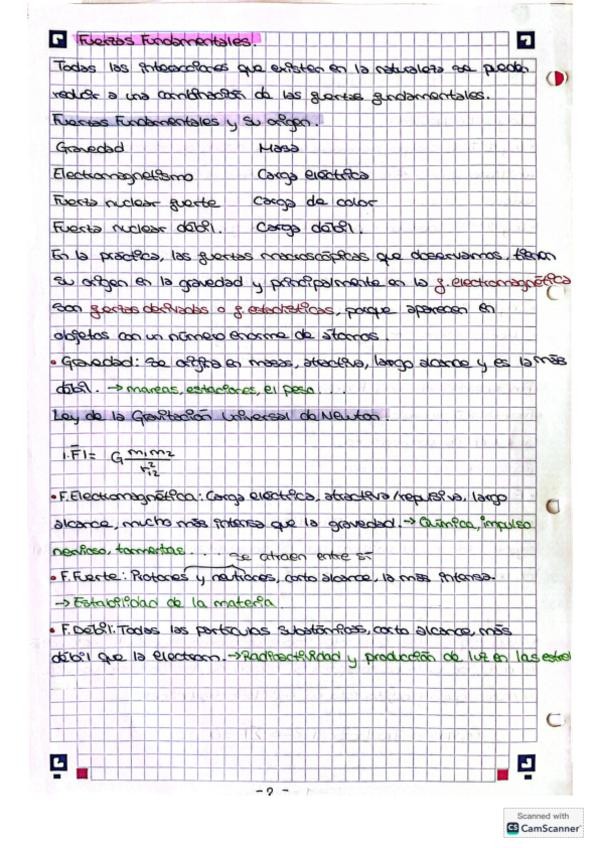 Fuerzas Fundamentales.
Todas las interacciones que existen en la naturaleza se pueden
reducir a una combinación de las fuerzas fundamentales.
Fuerzas Fundamentales y su origen.
Gravedad Masa
Electromagnetismo Carga eléctrica
Fuerza nuclear fuerte Carga de color
Fuerza nuclear débil. Carga débil.
En la práctica, las fuerzas macroscópicas que observamos, tienen
su origen en la gravedad y principalmente en la f. electromagnética
son fuerzas derivadas o f. estadísticas, porque aparecen en
objetos con un número enorme de átomos.
• Gravedad: Se origina en masas, atractiva, largo alcance y es la más
débil. → mareas, estaciones, el peso...
Ley de la Gravitación Universal de Newton.
|F̄| = G m₁m₂ / r₁₂²
• F. Electromagnética: Carga eléctrica, atractiva/repulsiva, largo
alcance, mucho más intensa que la gravedad. → Química, impulso
nervioso, tormentas....
se atraen entre sí
• F. Fuerte: Protones y neutrones, corto alcance, la más intensa.
→ Estabilidad de la materia
• F. Débil: Todas las partículas subatómicas, corto alcance, más
débil que la electrom. → Radioactividad y producción de luz en las estrel
- 2 -
Scanned with
CS CamScanner